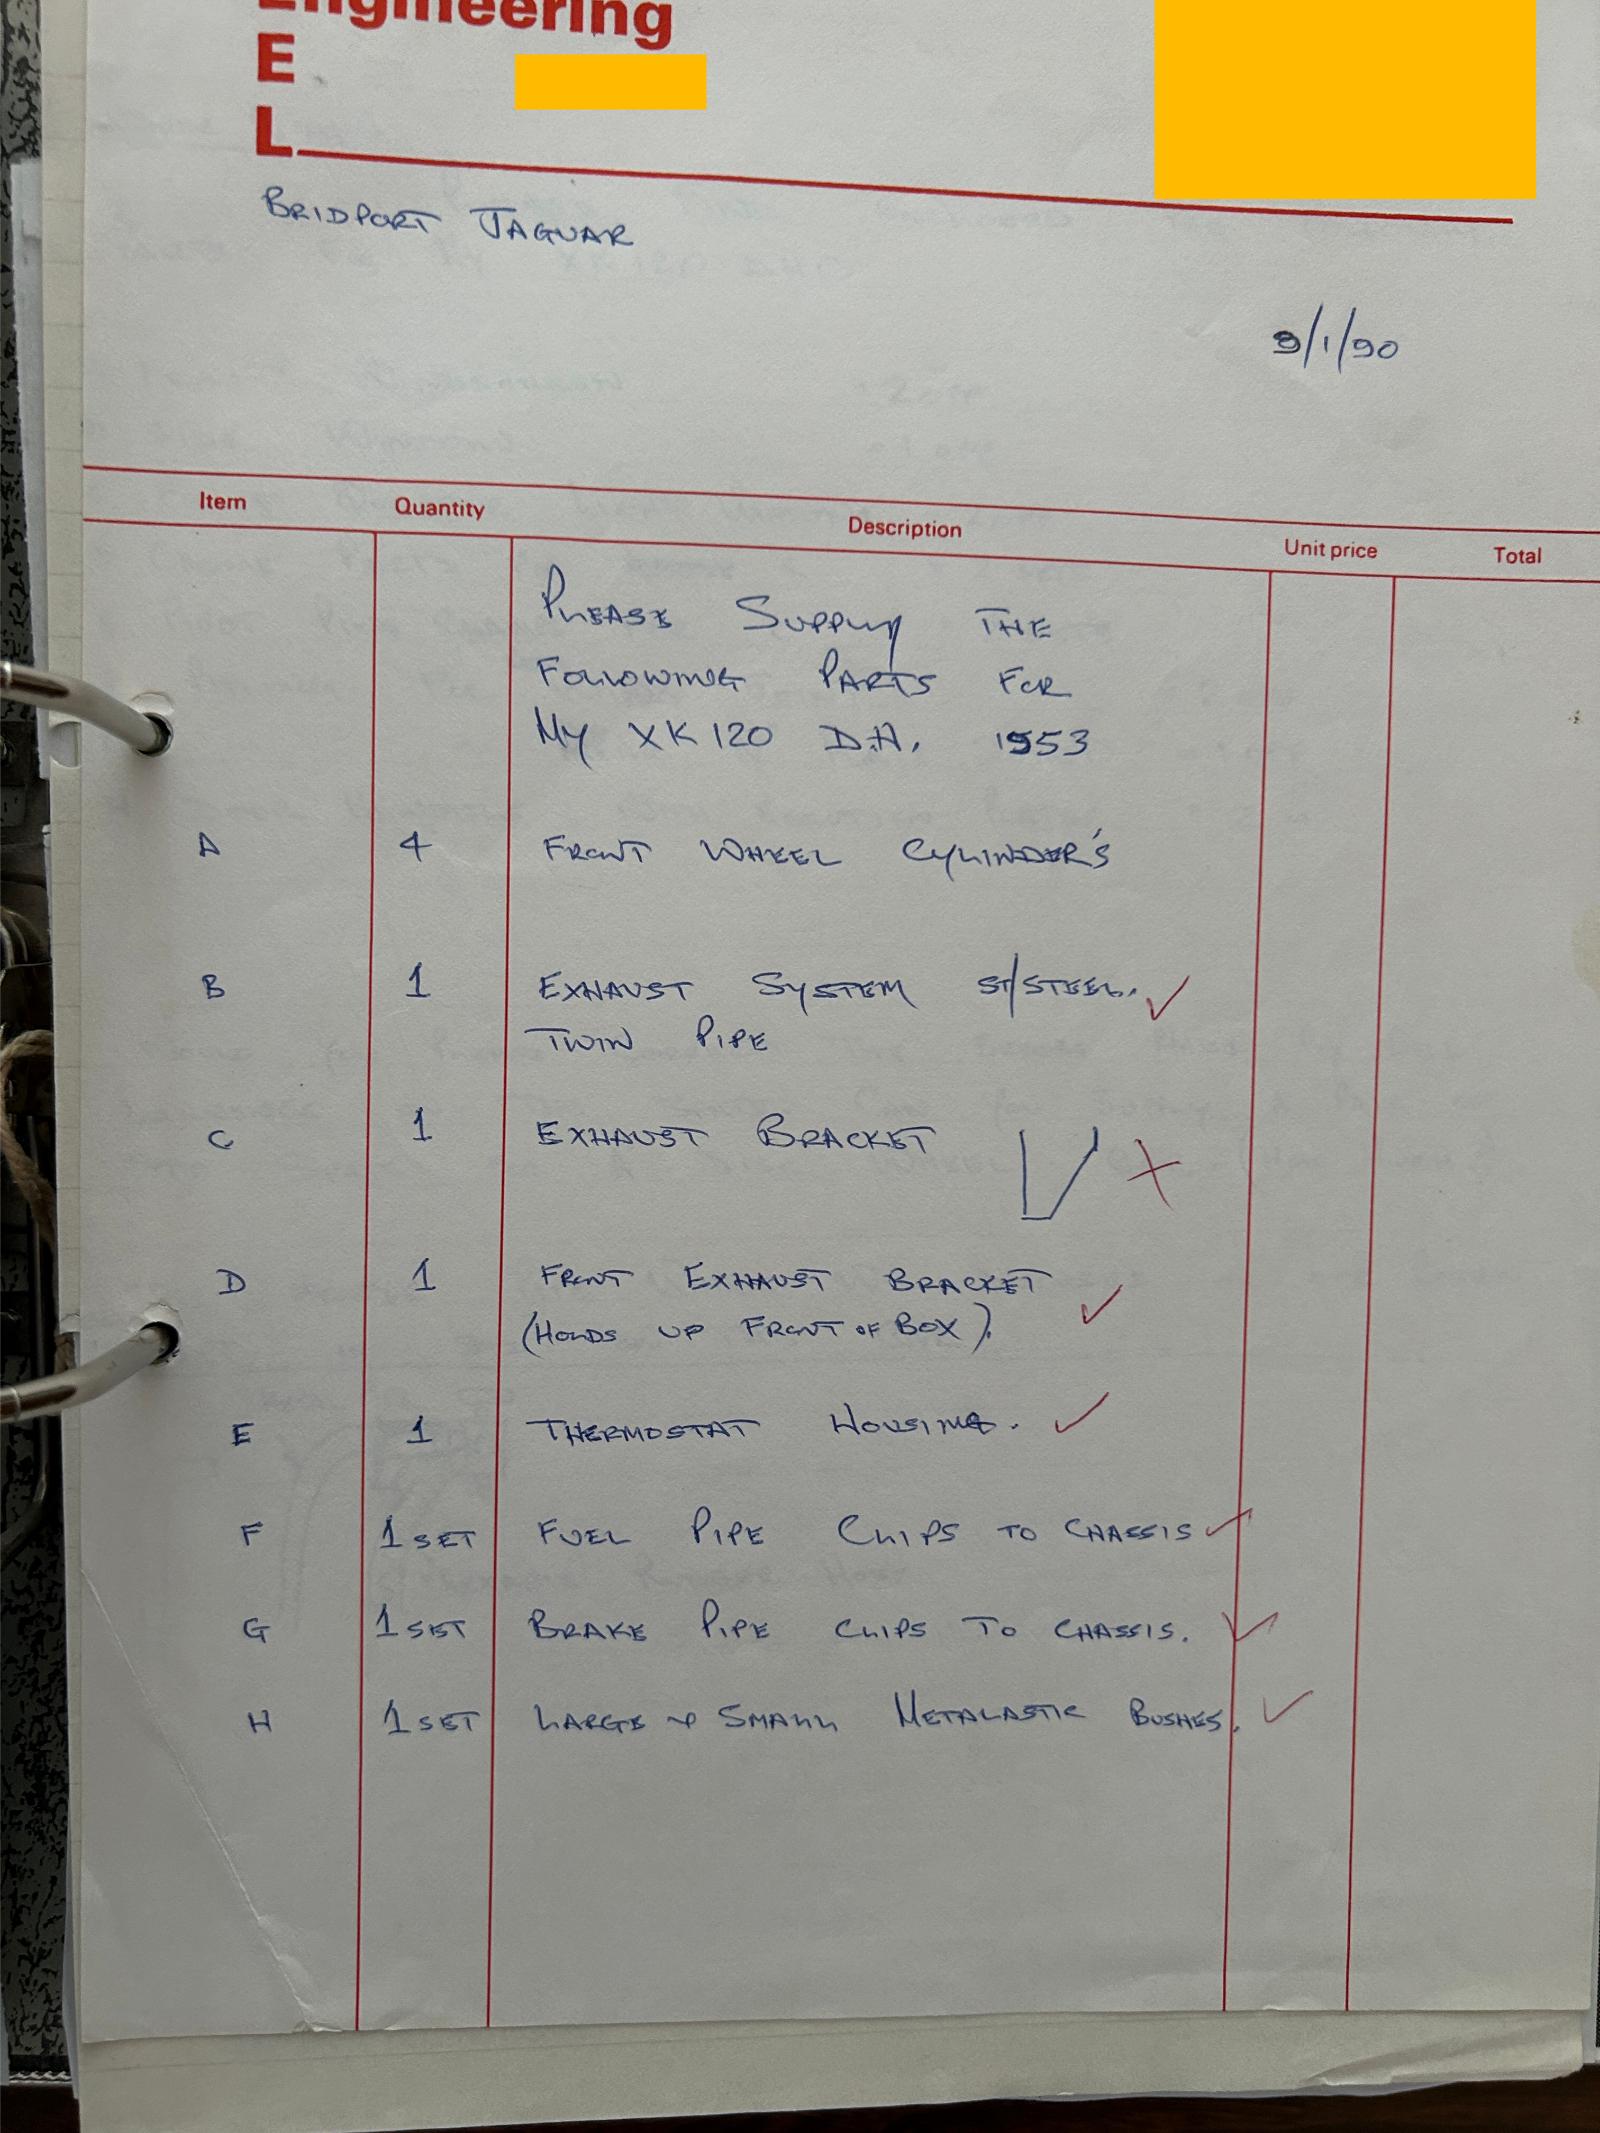 Engineering
E
L
BRIDPORT JAGUAR
9/1/90
Item Quantity Description Unit price Total
PLEASE SUPPLY THE
FOLLOWING PARTS FOR
MY XK120 D.H. 1953
A 4 FRONT WHEEL CYLINDER'S
B 1 EXHAUST SYSTEM ST/STEEL. ✓
TWIN PIPE
C 1 EXHAUST BRACKET ✗
D 1 FRONT EXHAUST BRACKET
(HOLDS UP FRONT OF BOX). ✓
E 1 THERMOSTAT HOUSING. ✓
F 1 SET FUEL PIPE CLIPS TO CHASSIS ✓
G 1 SET BRAKE PIPE CLIPS TO CHASSIS. ✓
H 1 SET LARGE & SMALL METALASTIC BUSHES. ✓